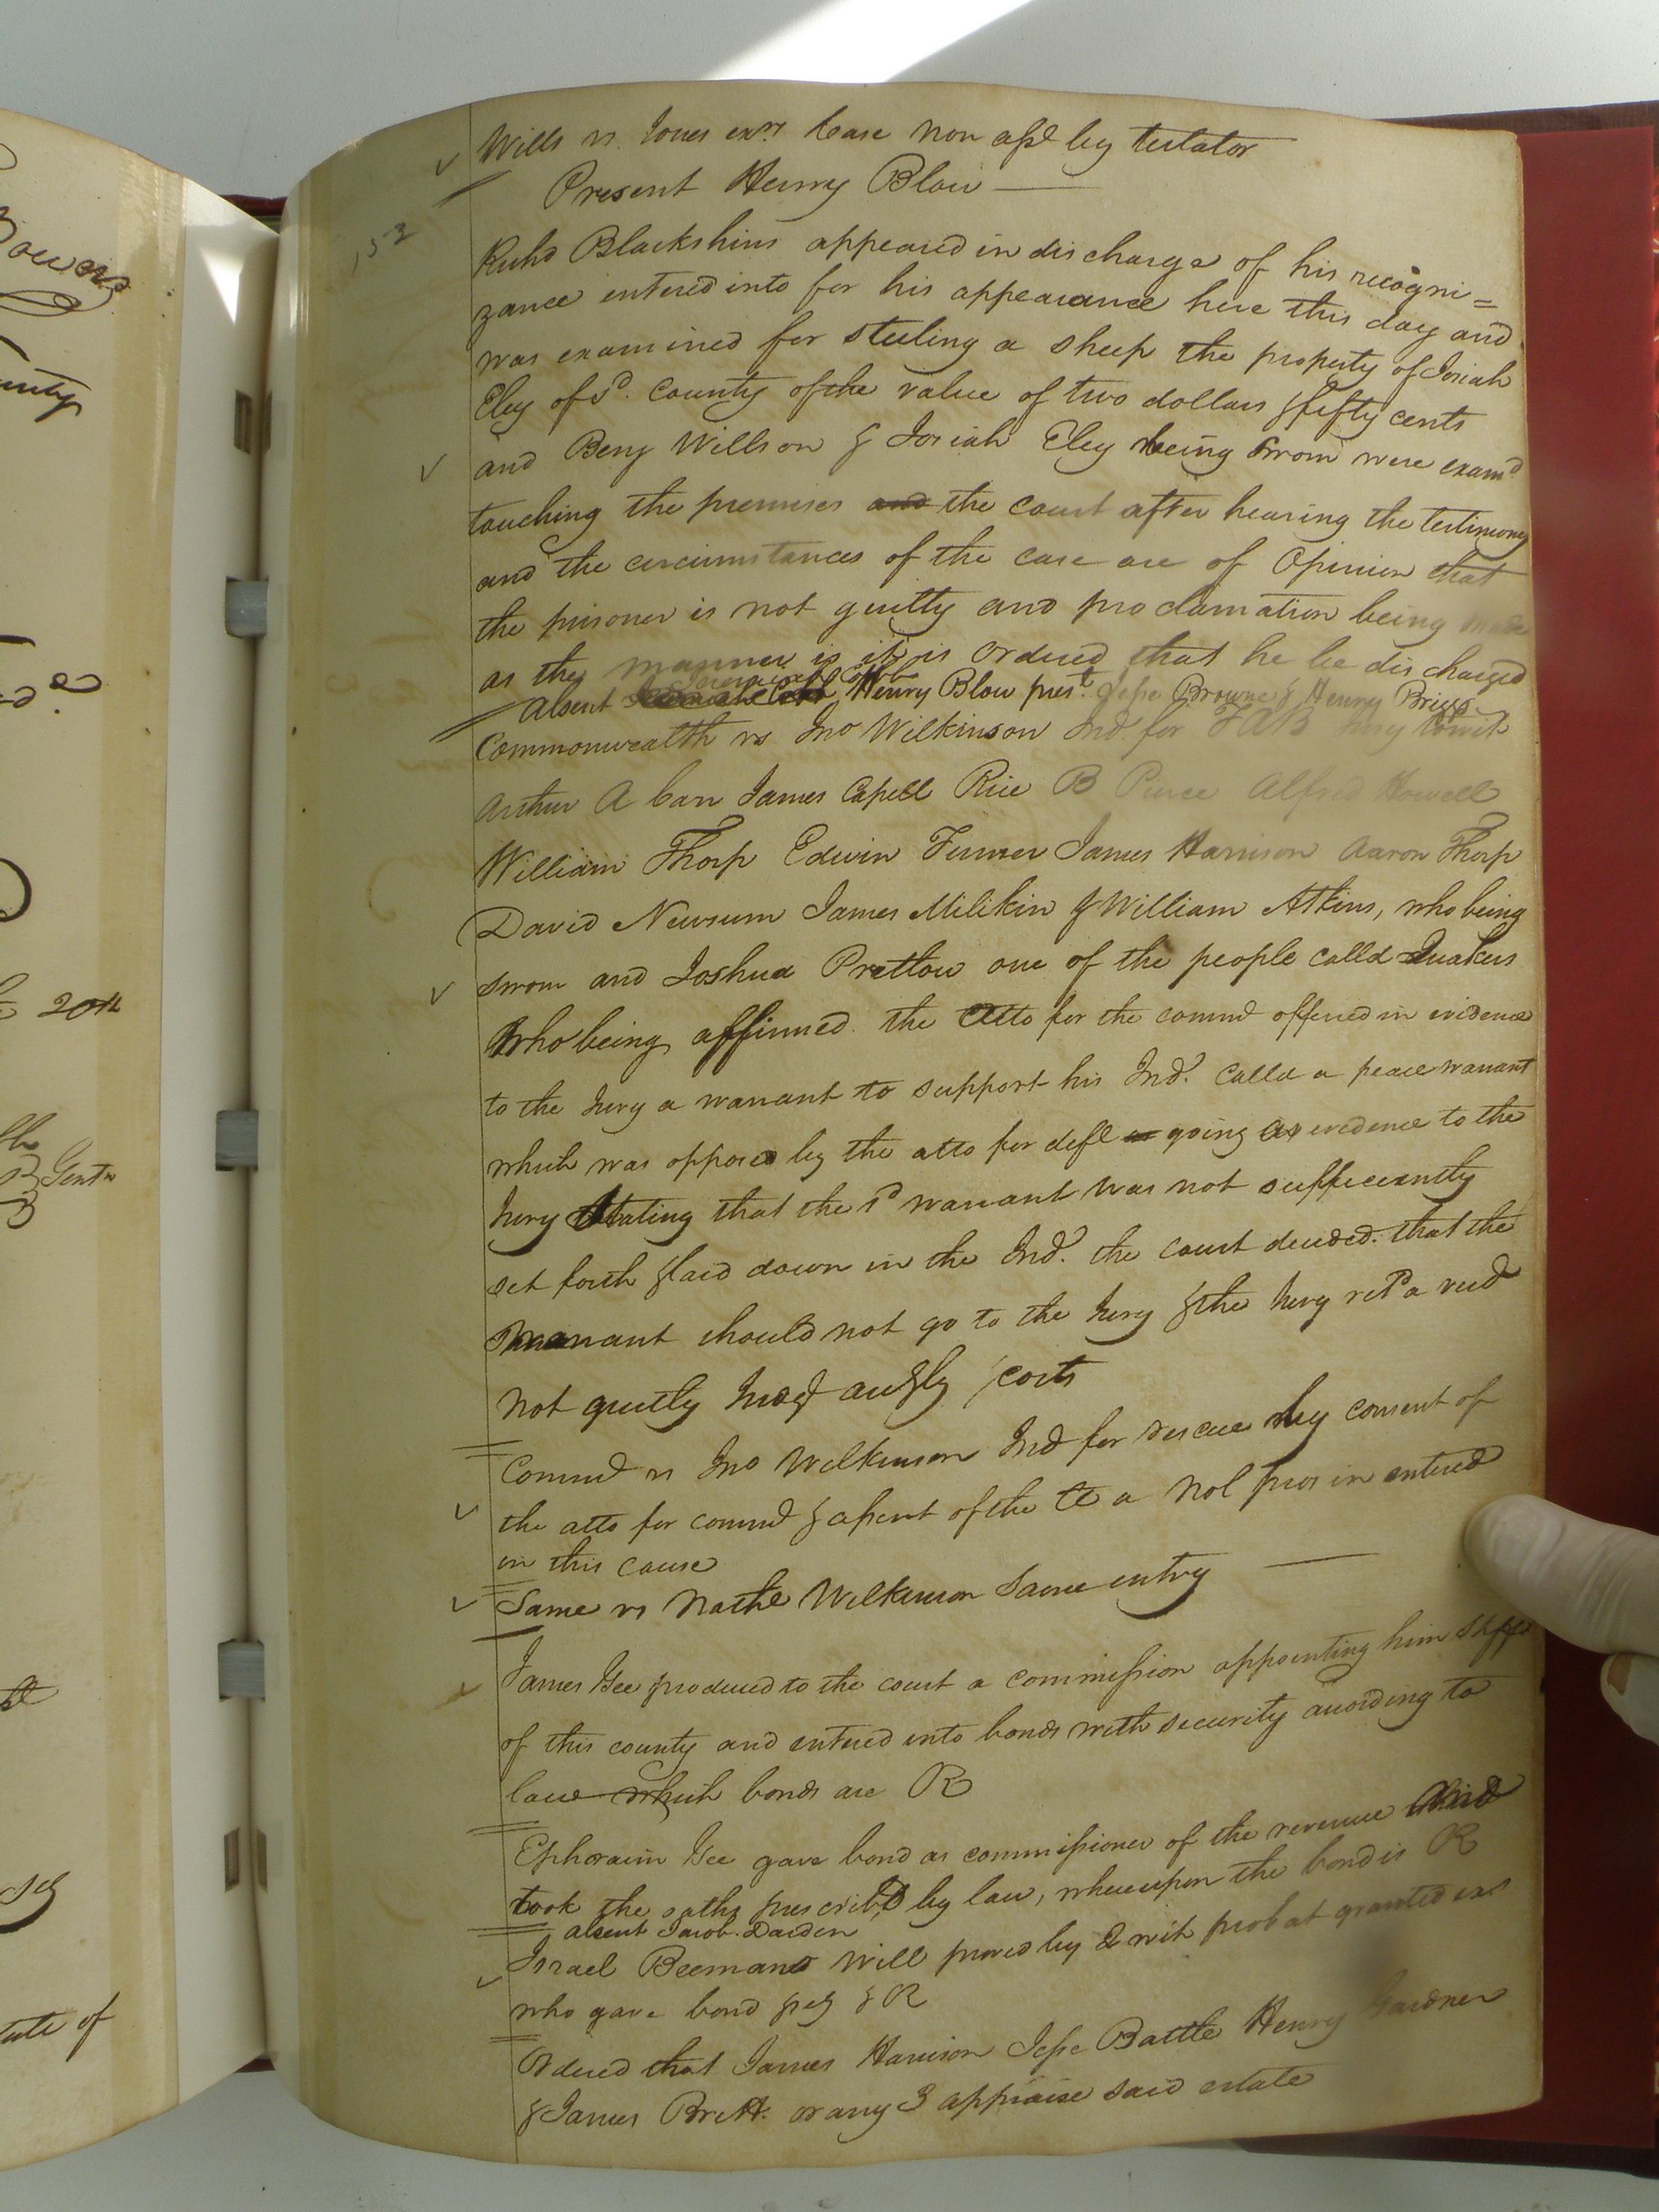 Wills vs. Jones exr. Case non asst by testator
Present Henry Blow
153
Richd Blackshins appeared in discharge of his recogni=
zance entered into for his appearance here this day and
was examined for steeling a sheep the property of Josiah
Eley of sd. County of the value of two dollars & fifty cents
and Benj Willson & Josiah Eley being sworn were examd
touching the premises and the court after hearing the testimony
and the circumstances of the case are of Opinion that
the prisoner is not guilty and proclamation being made
as the manner is it is ordered that he be discharged
Jeremiah Cobb
Absent Henry Blow prest. Jesse Browne & Henry Briggs
Commonwealth vs Jno Wilkinson Ind. for TAB Jury towit
Arthur A Carr James Capell Rice B Pierce Alfred Howell
William Thorp Edwin Turner James Harrison Aaron Thorp
David Newsum James Milikin & William Atkins, who being
sworn and Joshua Pretlow one of the people calld Quakers
who being affirmed. the Atto for the commd offered in evidence
to the Jury a warrant to support his Ind. Calld a peace warrant
which was opposed by the atto for deft going as evidence to the
Jury Stating that the sd warrant was not suffeceently
set forth & laid down in the Ind. the court decided. that the
warrant should not go to the Jury & the Jury retd a verd
not guilty Judgt & costs
Commd vs Jno Wilkinson Ind for rescue by consent of
the atto for commd & assent of the Ct a Nol pros in entered
in this cause
Same vs Nathl Wilkinson Same entry
James Gee produced to the court a commission appointing him Shff
of this county and entered into bonds with security according to
law which bonds are R
Ephoraim Gee gave bond as commissioner of the revenue And
took the oaths prescribd by law, whereupon the bond is R
absent Jacob Darden
Israel Beemans Will proved by 2 wit probat granted exr
who gave bond & R
Ordered that James Harrison Jesse Battle Henry Gardner
& James Britt. or any 3 appraise said estate
20th
Gent